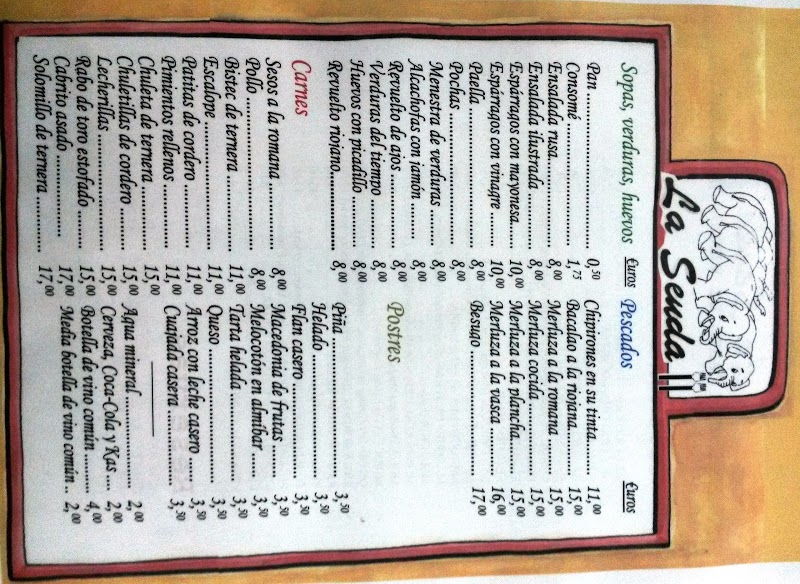 La Senda
Sopas, verduras, huevos €uros
Pan ........ 0,50
Consomé ........ 1,75
Ensalada rusa ........ 8,00
Ensalada ilustrada ........ 8,00
Espárragos con mayonesa ........ 10,00
Esparragos con vinagre ........ 10,00
Paella ........ 8,00
Pochas ........ 8,00
Menestra de verduras ........ 8,00
Alcachofas con jamón ........ 8,00
Revuelto de ajos ........ 8,00
Verduras del tiempo ........ 8,00
Huevos con picadillo ........ 8,00
Revuelto riojano ........ 8,00
Carnes
Sesos a la romana ........ 8,00
Pollo ........ 8,00
Bistec de ternera ........ 11,00
Escalope ........ 11,00
Patitas de cordero ........ 11,00
Pimientos rellenos ........ 11,00
Chuleta de ternera ........ 15,00
Chuletillas de cordero ........ 15,00
Lecherillas ........ 15,00
Rabo de toro estofado ........ 15,00
Cabrito asado ........ 17,00
Solomillo de ternera ........ 17,00
Pescados €uros
Chipirones en su tinta ........ 11,00
Bacalao a la riojana ........ 15,00
Merluza a la romana ........ 15,00
Merluza cocida ........ 15,00
Merluza a la plancha ........ 15,00
Merluza a la vasca ........ 16,00
Besugo ........ 17,00
Postres
Piña ........ 3,50
Helado ........ 3,50
Flan casero ........ 3,50
Macedonia de frutas ........ 3,50
Melocotón en almíbar ........ 3,50
Tarta helada ........ 3,50
Queso ........ 3,50
Arroz con leche casero ........ 3,50
Cuajada casera ........ 3,50
Agua mineral ........ 2,00
Cerveza, Coca-Cola y Kas ........ 2,00
Botella de vino común ........ 4,00
Media botella de vino común .. 2,00